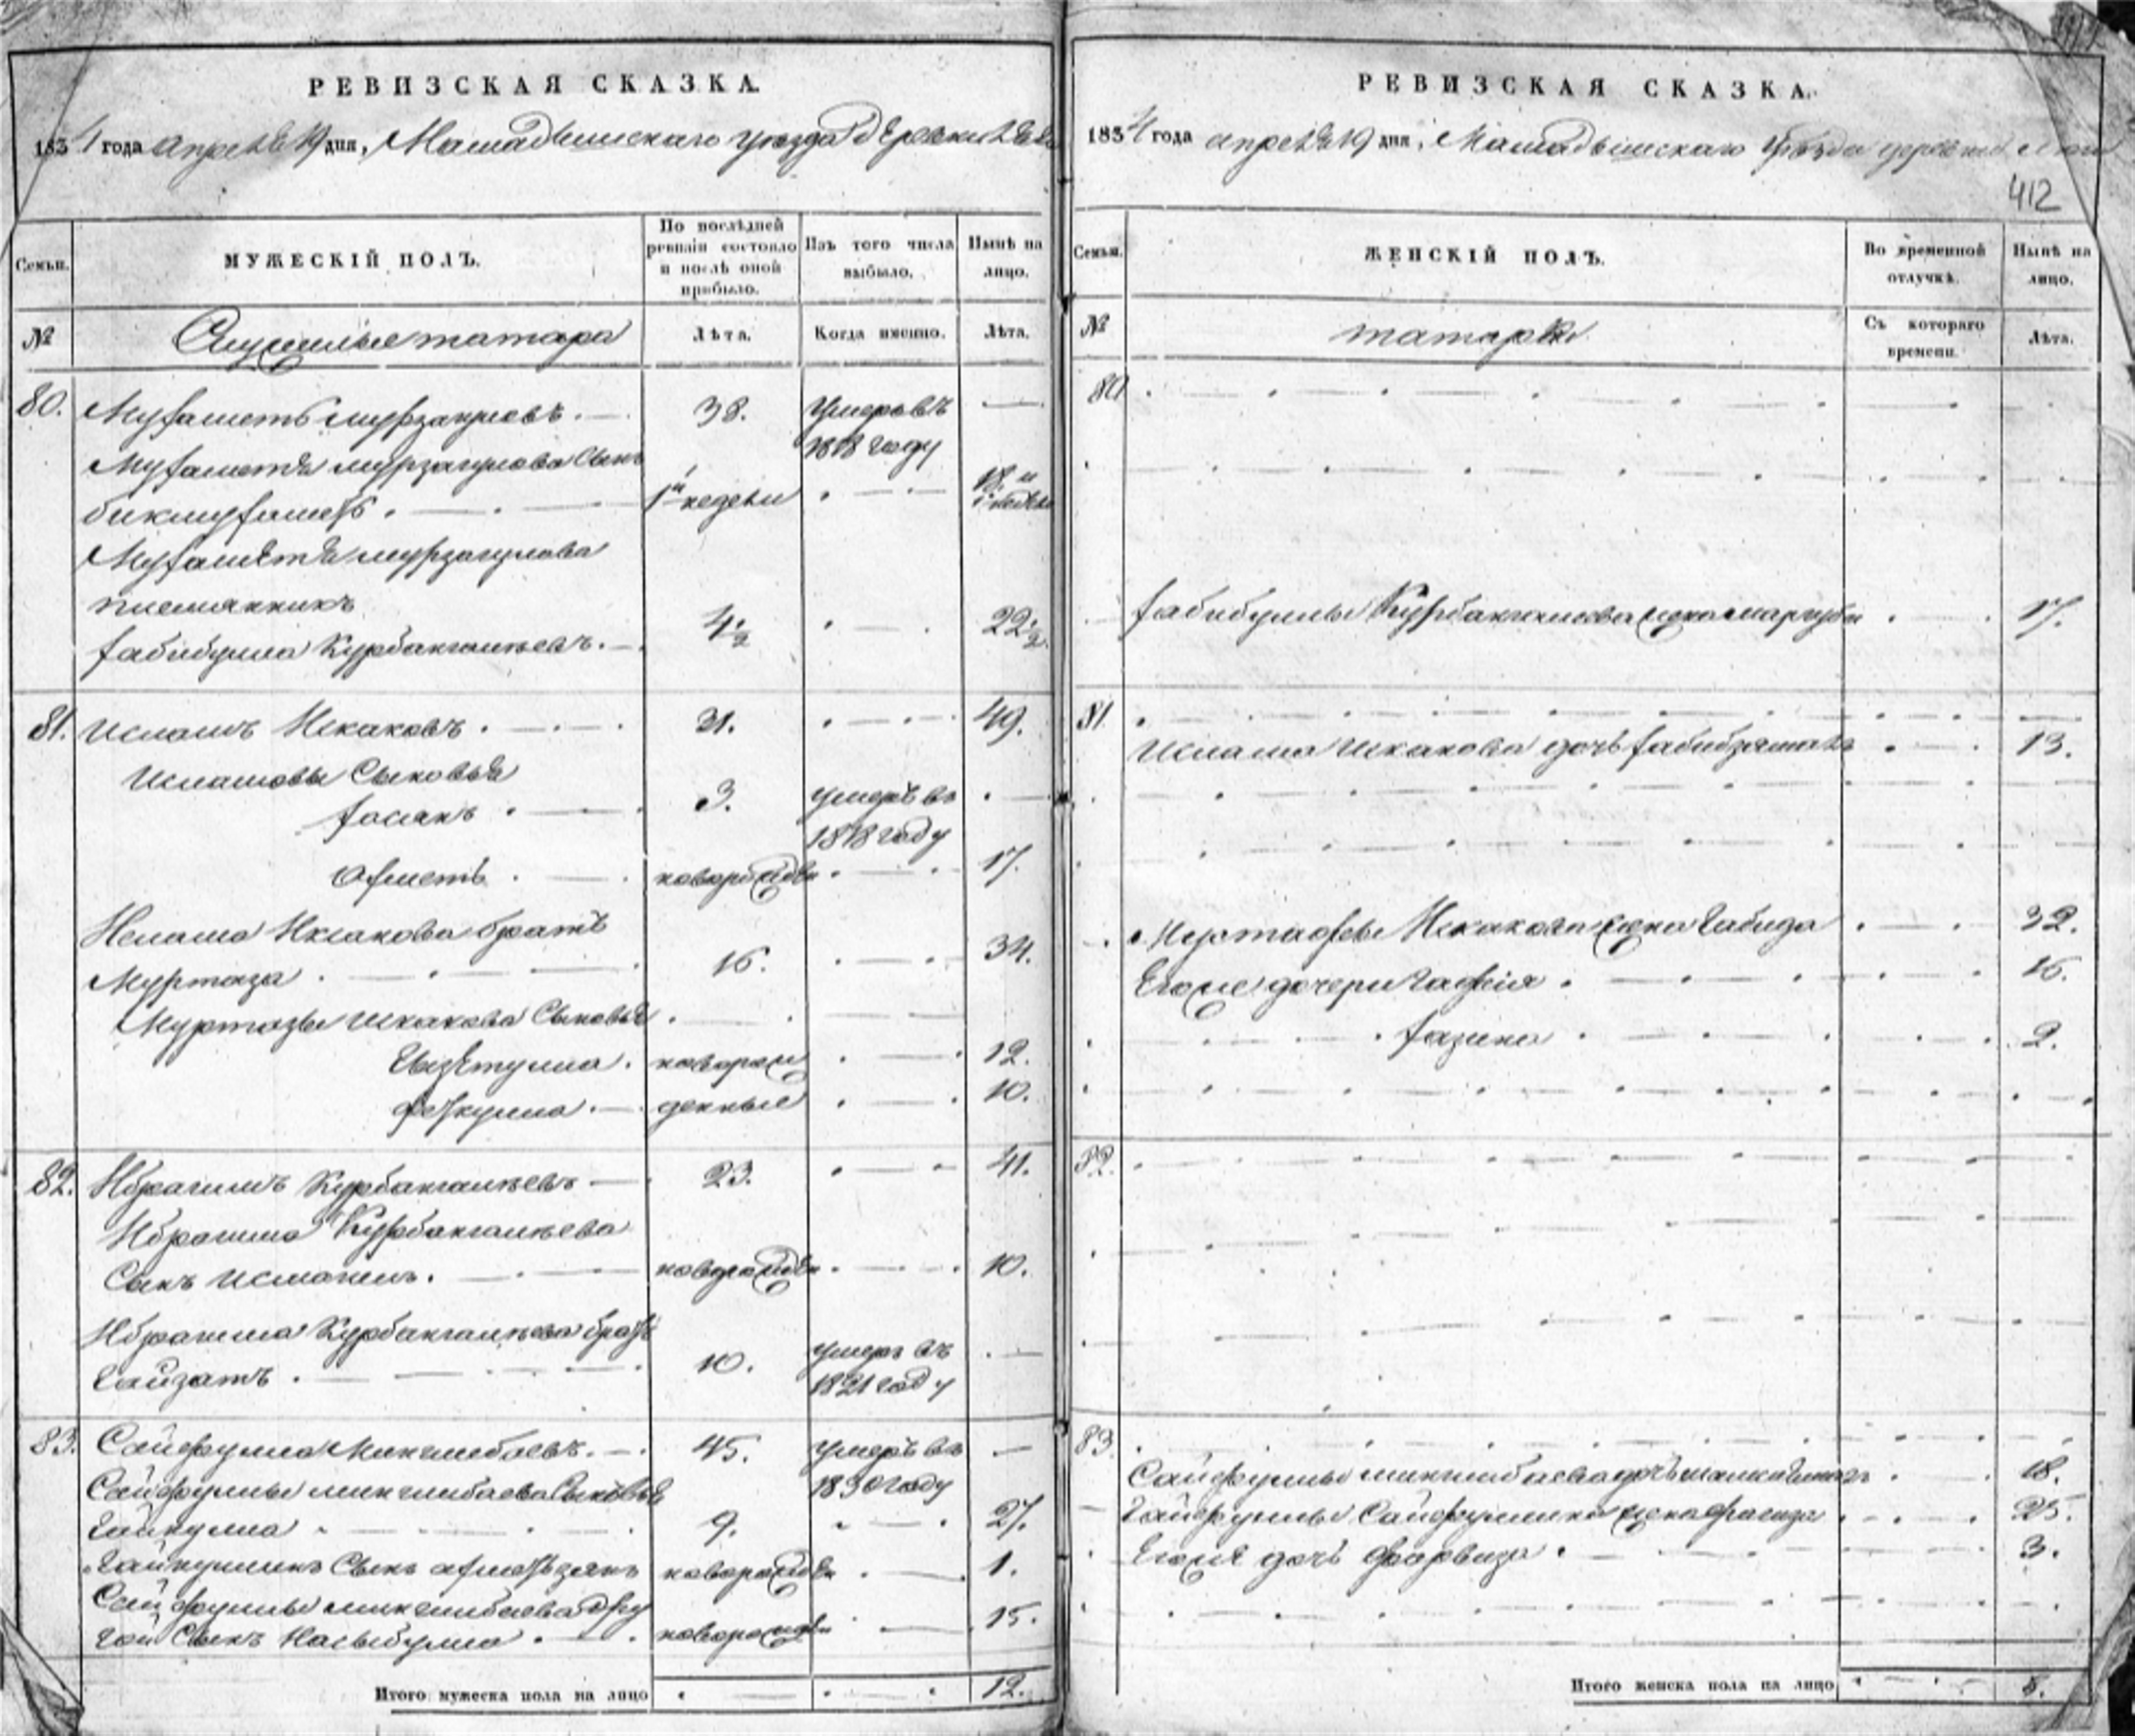 РЕВИЗСКАЯ СКАЗКА.
1834 года апреля 19 дня, Мамадышскаго уезда деревни
Семьи.
МУЖЕСКІЙ ПОЛЪ.
По послѣдней ревизіи состояло и послѣ оной прибыло.
Изъ того числа выбыло.
Нынѣ на лицо.
№
Служилые татара
Лѣта.
Когда именно.
Лѣта.
80. Мухаметь мурзакуловъ. 38. Умеръ въ —
18 году
Мухаметя мурзагулова Сынъ
бикмухаметь. 1 недели 18. и
Мухаметя мурзагулова
племянникъ
хабибулла Курбангалеевъ. 4½ 22½.
81. Исламъ Искаковъ. 31. 49.
Исламовы Сыновья
хасанъ. 3. умеръ въ
18 году
Ахметь. новорожден 17.
Ислама Искакова братъ
Муртаза. 16. 34.
Муртазы Искакова Сыновья.
Гизетулла. новорож 12.
Феткулла. денные 10.
82. Ибрагимъ Курбангалеевъ 23. 41.
Ибрагима Курбангалеева
Сынъ Исмагилъ. новорожден 10.
Ибрагима Курбангалеева братъ
Гайзатъ. 10. умеръ въ
1821 году
83. Сайфулла Минглибаевъ. 45. умеръ въ —
Сайфуллы минглибаева Сыновья 1830 году
Гайнулла 9. 27.
Гайнуллинъ Сынъ ахметзянъ новорожден 1.
Сайфуллы минглибаева дру
гой Сынъ Насыбулла. новорожден 15.
Итого мужеска пола на лицо 12.
РЕВИЗСКАЯ СКАЗКА.
1834 года апреля 19 дня, Мамадышскаго уезда деревни
412
Семьи.
ЖЕНСКІЙ ПОЛЪ.
Во временной отлучкѣ.
Нынѣ на лицо.
№
татарки
Съ котораго времени.
Лѣта.
80
хабибуллы Курбангалеева жена 17.
81.
Ислама Искакова дочь 13.
Муртазы Искакова жена Габида 32.
Егоже дочери Гафія. 16.
хазина 2.
82.
83.
Сайфуллы минглибаева дочь 18.
Гайнуллы Сайфуллина жена 25.
Егоже дочь Фарвиза. 3.
Итого женска пола на лицо 8.